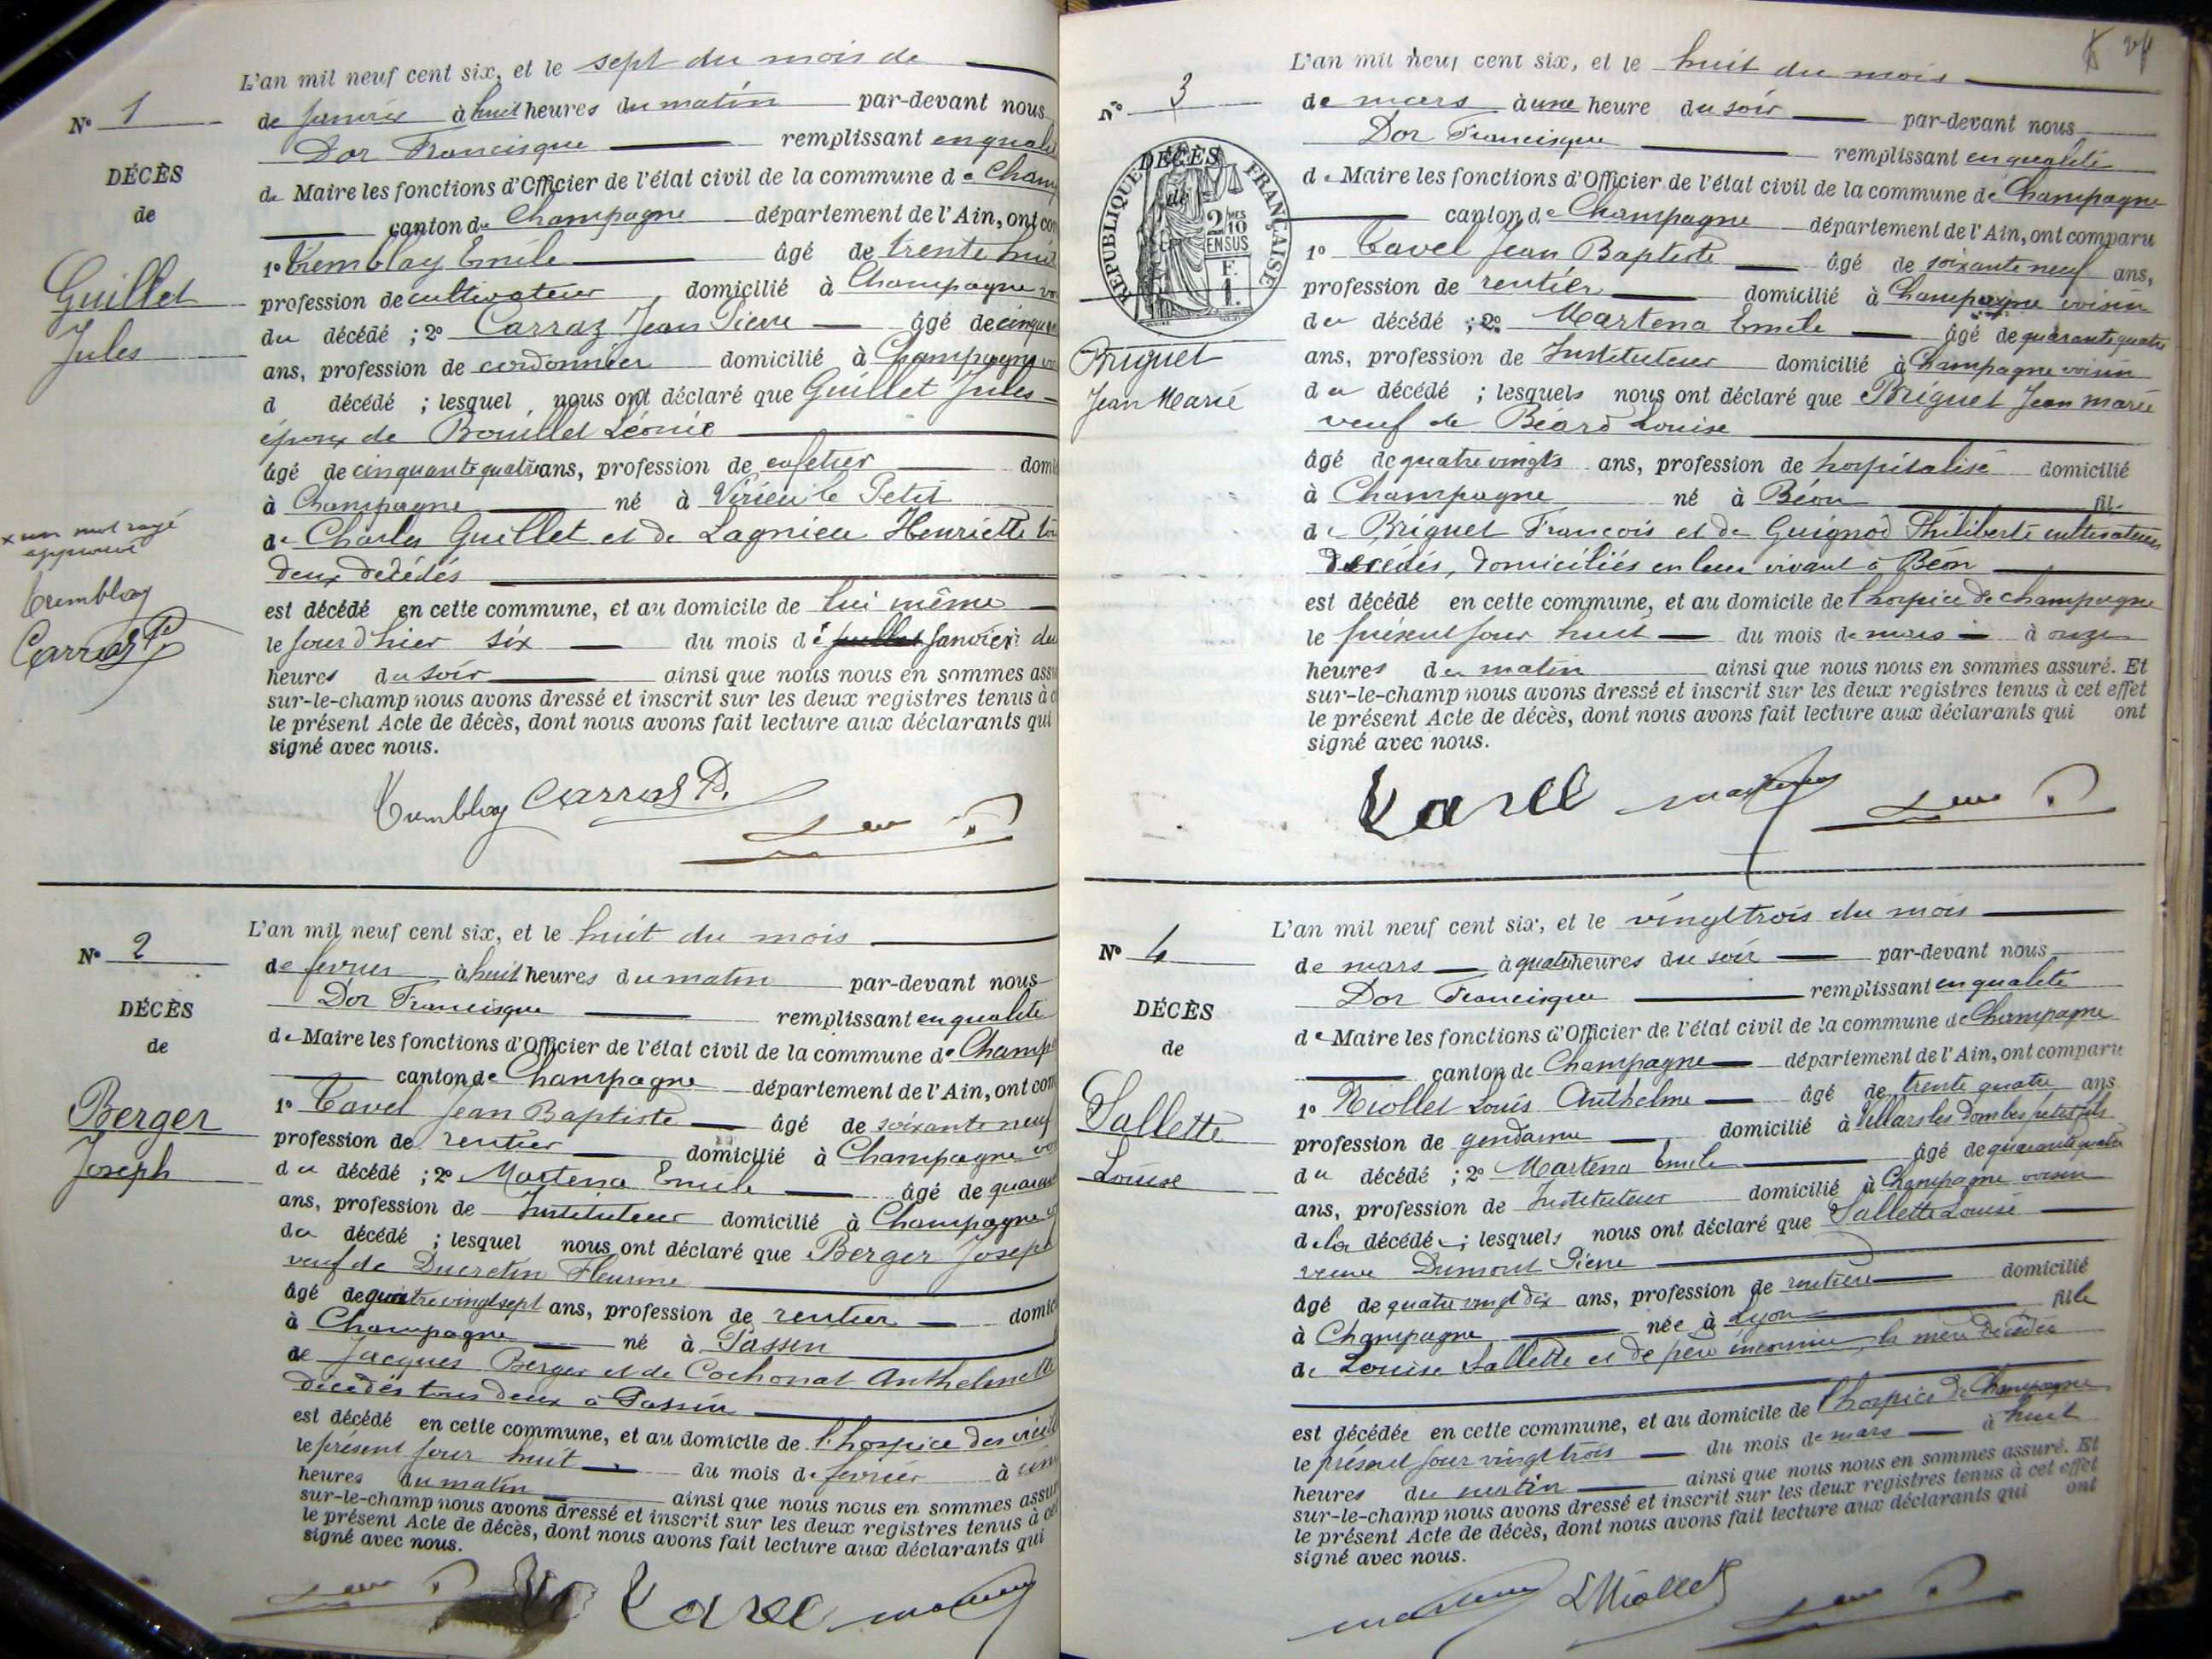 L'an mil neuf cent six, et le sept du mois de
de janvier à huit heures du matin par-devant nous
Dor Francisque remplissant en qualité
de Maire les fonctions d'Officier de l'état civil de la commune de Champ
canton de Champagne département de l'Ain, ont com
1º Tremblay Emile âgé de trente huit
profession de cultivateur domicilié à Champagne voi
du décédé ; 2º Carraz Jean Pierre âgé de cinquan
ans, profession de cordonnier domicilié à Champagne voi
d décédé ; lesquel nous ont déclaré que Guillet Jules
époux de Bouillet Léonie
âgé de cinquante quatre ans, profession de cafetier domi
à Champagne né à Virieu le Petit
de Charles Guillet et de Lagnieu Henriette tou
deux décédés
est décédé en cette commune, et au domicile de lui même
le jour d'hier six du mois de juillet janvier à dix
heures du soir ainsi que nous nous en sommes assu
sur-le-champ nous avons dressé et inscrit sur les deux registres tenus à c
le présent Acte de décès, dont nous avons fait lecture aux déclarants qui
signé avec nous.
Tremblay Carraz P.
Nº 1
DÉCÈS
de
Guillet
Jules
x un mot rayé
approuvé
Tremblay
Carraz P.
L'an mil neuf cent six, et le huit du mois
de fevrier à huit heures du matin par-devant nous
Dor Francisque remplissant en qualité
de Maire les fonctions d'Officier de l'état civil de la commune de Champ
canton de Champagne département de l'Ain, ont com
1º Tavel Jean Baptiste âgé de soixante neuf
profession de rentier domicilié à Champagne voi
du décédé ; 2º Martena Emile âgé de quaran
ans, profession de Instituteur domicilié à Champagne
du décédé ; lesquel nous ont déclaré que Berger Joseph
veuf de Ducretin Fleurine
âgé de quatre vingt sept ans, profession de rentier domici
à Champagne né à Passin
de Jacques Berger et de Cochonat Anthelmette
décédés tous deux à Passin
est décédé en cette commune, et au domicile de l'hospice des vieil
le présent jour huit du mois de fevrier à cinq
heures du matin ainsi que nous nous en sommes assur
sur-le-champ nous avons dressé et inscrit sur les deux registres tenus à cet
le présent Acte de décès, dont nous avons fait lecture aux déclarants qui
signé avec nous.
Tavel
Nº 2
DÉCÈS
de
Berger
Joseph
L'an mil neuf cent six, et le huit du mois
de mars à une heure du soir par-devant nous
Dor Francisque remplissant en qualité
de Maire les fonctions d'Officier de l'état civil de la commune de Champagne
canton de Champagne département de l'Ain, ont comparu
1º Tavel Jean Baptiste âgé de soixante neuf ans,
profession de rentier domicilié à Champagne voisin
du décédé ; 2º Martena Emile âgé de quarante quatre
ans, profession de Instituteur domicilié à Champagne voisin
du décédé ; lesquels nous ont déclaré que Briguet Jean Marie
veuf de Béard Louise
âgé de quatre vingts ans, profession de hospitalisé domicilié
à Champagne né à Béon fil
de Briguet François et de Guignod Philiberte cultivateurs
décédés, domiciliés en leur vivant à Béon
est décédé en cette commune, et au domicile de l'hospice de champagne
le présent jour huit du mois de mars à onze
heures du matin ainsi que nous nous en sommes assuré. Et
sur-le-champ nous avons dressé et inscrit sur les deux registres tenus à cet effet
le présent Acte de décès, dont nous avons fait lecture aux déclarants qui ont
signé avec nous.
Tavel
Nº 3
DÉCÈS
de
REPUBLIQUE FRANÇAISE
2/10 MES
EN SUS
F.
1.
Briguet
Jean Marie
L'an mil neuf cent six, et le vingt trois du mois
de mars à quatre heures du soir par-devant nous
Dor Francisque remplissant en qualité
de Maire les fonctions d'Officier de l'état civil de la commune de Champagne
canton de Champagne département de l'Ain, ont comparu
1º Niollet Louis Anthelme âgé de trente quatre ans
profession de gendarme domicilié à Villars les Dombes petit fils
du décédé ; 2º Martena Emile âgé de quarante quatre
ans, profession de Instituteur domicilié à Champagne voisin
de la décédée ; lesquels nous ont déclaré que Sallette Louise
veuve Dumont Pierre
âgé de quatre vingt dix ans, profession de rentière domicilié
à Champagne née à Lyon fille
de Louise Sallette et de père inconnu, la mère décédée
est décédée en cette commune, et au domicile de l'hospice de Champagne
le présent jour vingt trois du mois de mars à huit
heures du matin ainsi que nous nous en sommes assuré. Et
sur-le-champ nous avons dressé et inscrit sur les deux registres tenus à cet effet
le présent Acte de décès, dont nous avons fait lecture aux déclarants qui ont
signé avec nous.
Nº 4
DÉCÈS
de
Sallette
Louise